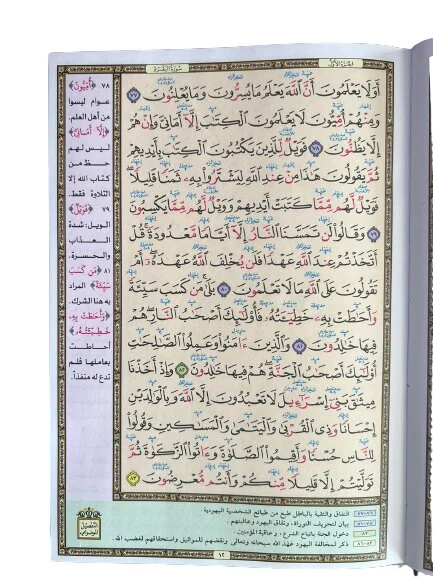 الجزء الأول
سورة البقرة
أَوَلَا يَعْلَمُونَ أَنَّ ٱللَّهَ يَعْلَمُ مَا يُسِرُّونَ وَمَا يُعْلِنُونَ ٧٧
وَمِنْهُمْ أُمِّيُّونَ لَا يَعْلَمُونَ ٱلْكِتَٰبَ إِلَّآ أَمَانِىَّ وَإِنْ هُمْ
إِلَّا يَظُنُّونَ ٧٨ فَوَيْلٌ لِّلَّذِينَ يَكْتُبُونَ ٱلْكِتَٰبَ بِأَيْدِيهِمْ
ثُمَّ يَقُولُونَ هَٰذَا مِنْ عِندِ ٱللَّهِ لِيَشْتَرُوا۟ بِهِۦ ثَمَنًا قَلِيلًا
فَوَيْلٌ لَّهُم مِّمَّا كَتَبَتْ أَيْدِيهِمْ وَوَيْلٌ لَّهُم مِّمَّا يَكْسِبُونَ
٧٩ وَقَالُوا۟ لَن تَمَسَّنَا ٱلنَّارُ إِلَّآ أَيَّامًا مَّعْدُودَةً قُلْ
أَتَّخَذْتُمْ عِندَ ٱللَّهِ عَهْدًا فَلَن يُخْلِفَ ٱللَّهُ عَهْدَهُۥٓ أَمْ
تَقُولُونَ عَلَى ٱللَّهِ مَا لَا تَعْلَمُونَ ٨٠ بَلَىٰ مَن كَسَبَ سَيِّئَةً
وَأَحَٰطَتْ بِهِۦ خَطِيٓـَٔتُهُۥ فَأُو۟لَٰٓئِكَ أَصْحَٰبُ ٱلنَّارِ هُمْ
فِيهَا خَٰلِدُونَ ٨١ وَٱلَّذِينَ ءَامَنُوا۟ وَعَمِلُوا۟ ٱلصَّٰلِحَٰتِ
أُو۟لَٰٓئِكَ أَصْحَٰبُ ٱلْجَنَّةِ هُمْ فِيهَا خَٰلِدُونَ ٨٢ وَإِذْ أَخَذْنَا
مِيثَٰقَ بَنِىٓ إِسْرَٰٓءِيلَ لَا تَعْبُدُونَ إِلَّا ٱللَّهَ وَبِٱلْوَٰلِدَيْنِ
إِحْسَانًا وَذِى ٱلْقُرْبَىٰ وَٱلْيَتَٰمَىٰ وَٱلْمَسَٰكِينِ وَقُولُوا۟
لِلنَّاسِ حُسْنًا وَأَقِيمُوا۟ ٱلصَّلَوٰةَ وَءَاتُوا۟ ٱلزَّكَوٰةَ ثُمَّ
تَوَلَّيْتُمْ إِلَّا قَلِيلًا مِّنكُمْ وَأَنتُم مُّعْرِضُونَ ٨٣
٧٨ ﴿أُمِّيُّونَ﴾
عوام ليسوا
من أهل العلم.
﴿إِلَّا أَمَانِيَّ﴾
ليس لهم
حظ من
كتاب الله إلا
التلاوة فقط.
٧٩ ﴿فَوَيْلٌ﴾
الويل: شدة
العذاب
والحسرة.
٨١ ﴿مَن كَسَبَ
سَيِّئَةً﴾ المراد
به هنا الشرك.
﴿وَأَحَٰطَتْ بِهِۦ
خَطِيٓـَٔتُهُۥ﴾
أحاطت
بعاملها فلم
تدع له منفذاً.
٧٦-٧٧ النفاق والتقية بالباطل طبع من طبائع الشخصية اليهودية.
٧٨-٨١ بيان لتحريف التوراة، ونفاق اليهود وعاقبتهم.
٨٢ دخول الجنة باتباع الشرع، وعاقبة المؤمنين
٨٣-٨٦ ذكر لمخالفة اليهود عهد الله سبحانه وتعالى ونقضهم للمواثيق واستحقاقهم لغضب الله.
١٢